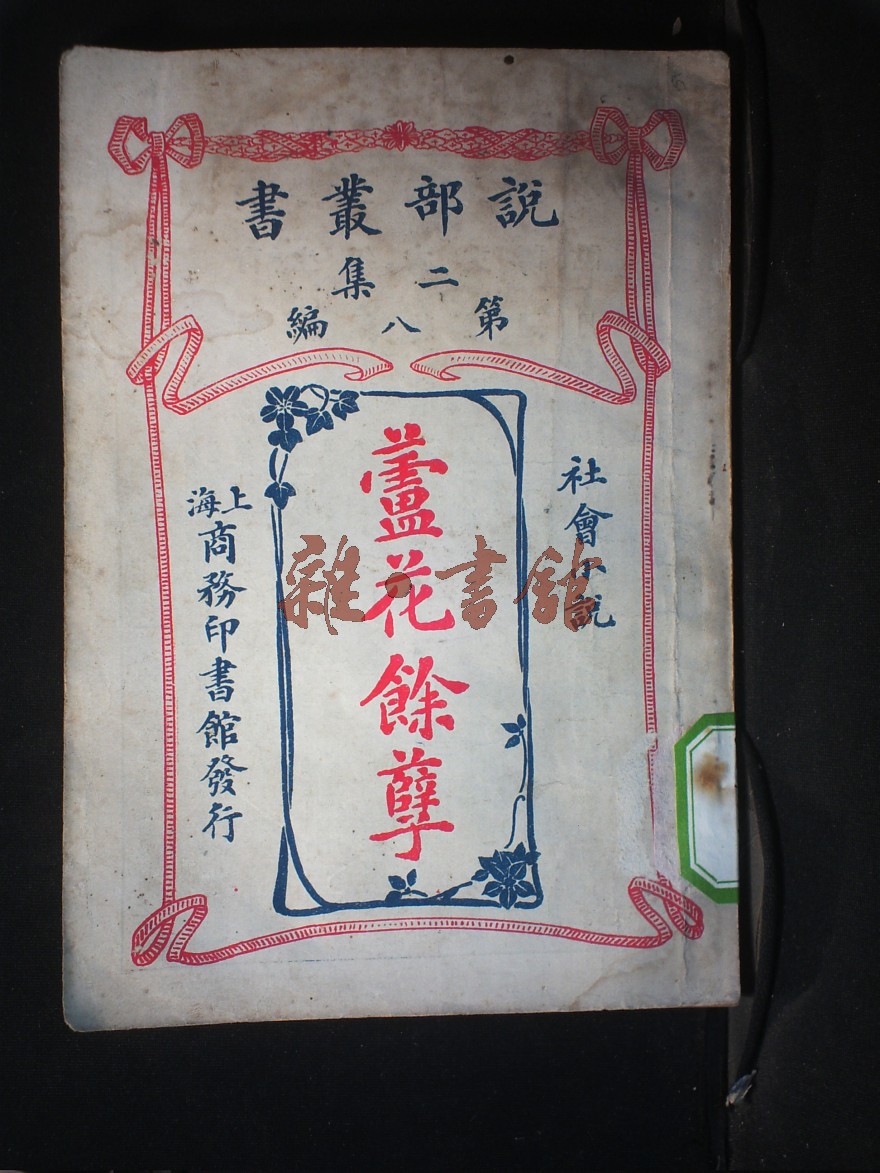 說部叢書
二集
第八編
社會小說
蘆花餘孽
上海商務印書館發行
雜·書館